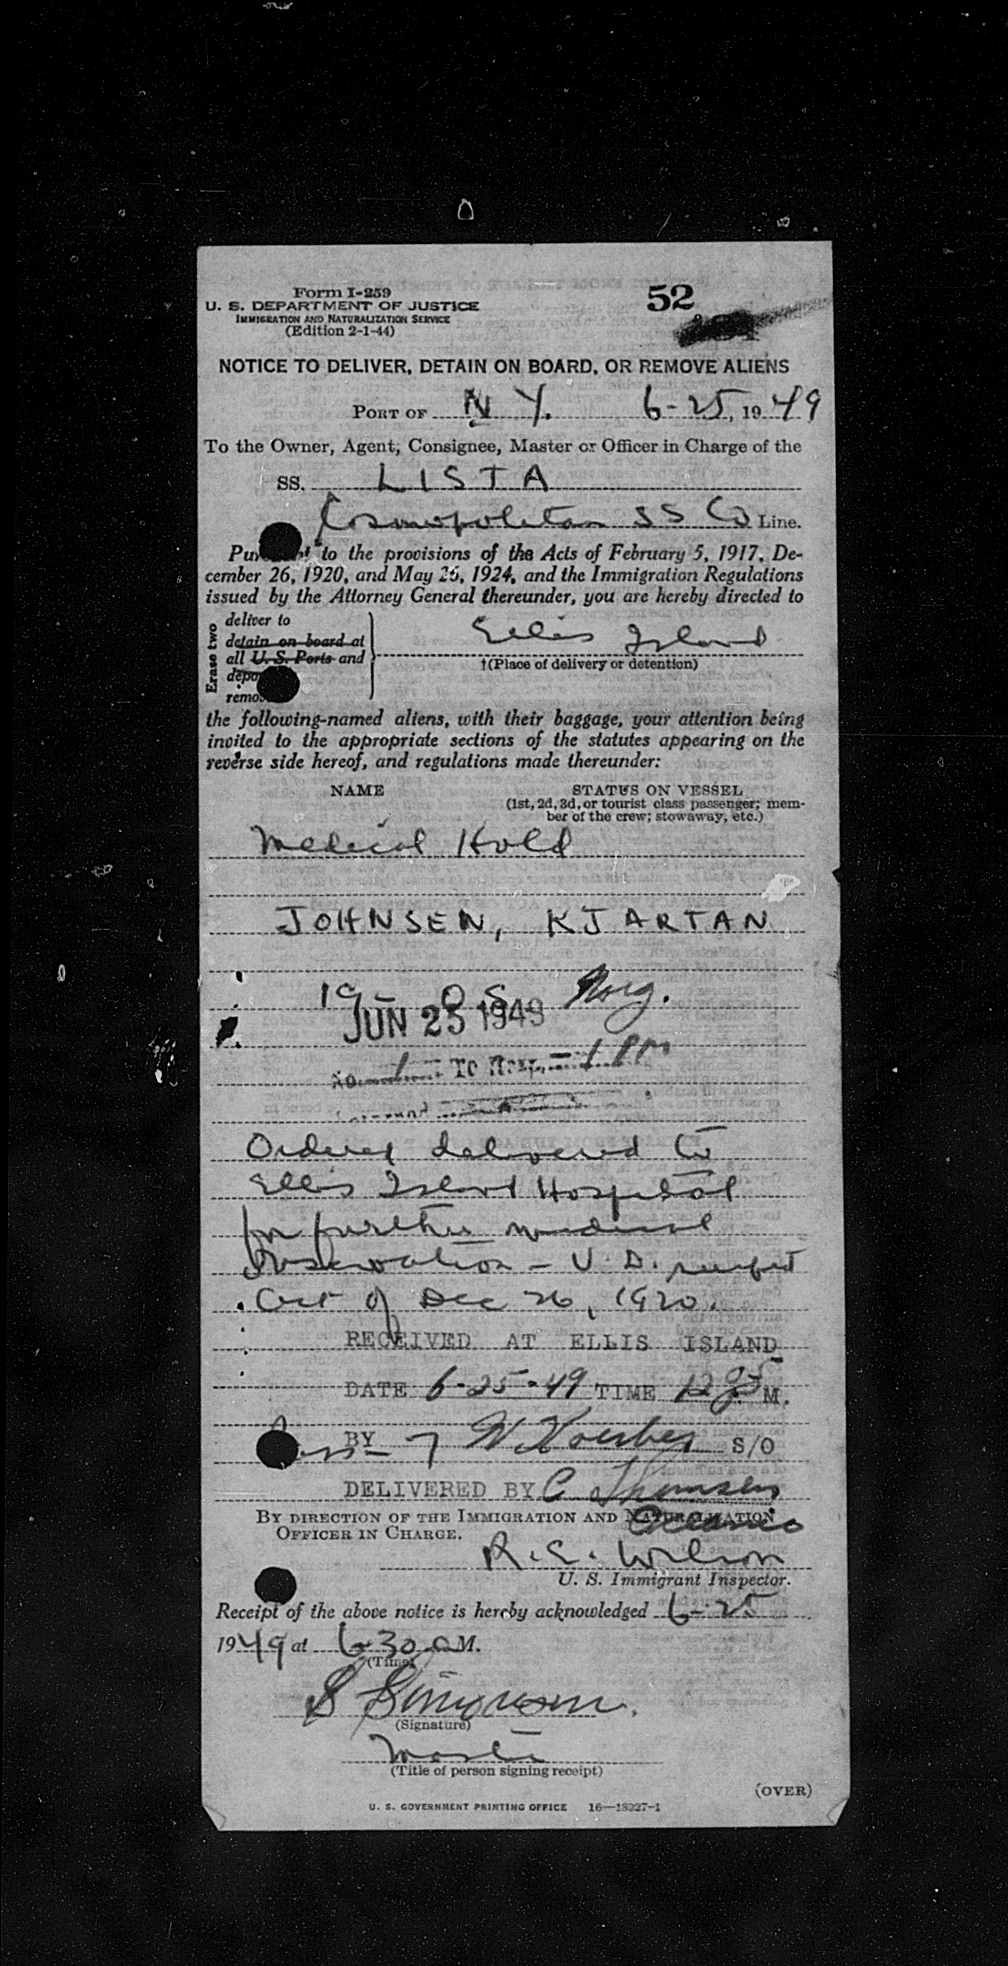 Form I-259
U. S. DEPARTMENT OF JUSTICE
IMMIGRATION AND NATURALIZATION SERVICE
(Edition 2-1-44)
52
NOTICE TO DELIVER, DETAIN ON BOARD, OR REMOVE ALIENS
PORT OF N. Y. 6-25, 1949
To the Owner, Agent, Consignee, Master or Officer in Charge of the
SS. LISTA
Cosmopolitan SS Co Line.
to the provisions of the Acts of February 5, 1917, De-
cember 26, 1920, and May 26, 1924, and the Immigration Regulations
issued by the Attorney General thereunder, you are hereby directed to
Erase two
deliver to
detain on board at
all U. S. Ports and
Ellis Island
†(Place of delivery or detention)
the following-named aliens, with their baggage, your attention being
invited to the appropriate sections of the statutes appearing on the
reverse side hereof, and regulations made thereunder:
NAME STATUS ON VESSEL
(1st, 2d, 3d, or tourist class passenger; mem-
ber of the crew; stowaway, etc.)
Medical Hold
JOHNSEN, KJARTAN
19 - OS Norg.
JUN 25 1949
No. 1 To Hosp. 1 PM
Ordered delivered to
Ellis Island Hospital
for further medical
observation - V. D. suspect
Act of Dec 26, 1920.
RECEIVED AT ELLIS ISLAND
DATE 6-25-49 TIME 12 M.
BY S/O
DELIVERED BY C Thomsen
BY DIRECTION OF THE IMMIGRATION AND NATURALIZATION
OFFICER IN CHARGE.
R. C. Wilson
U. S. Immigrant Inspector.
Receipt of the above notice is hereby acknowledged 6-25
1949 at 6-30 a M.
(Time)
S Simonsen.
(Signature)
Master
(Title of person signing receipt)
(OVER)
U. S. GOVERNMENT PRINTING OFFICE 16—18227-1